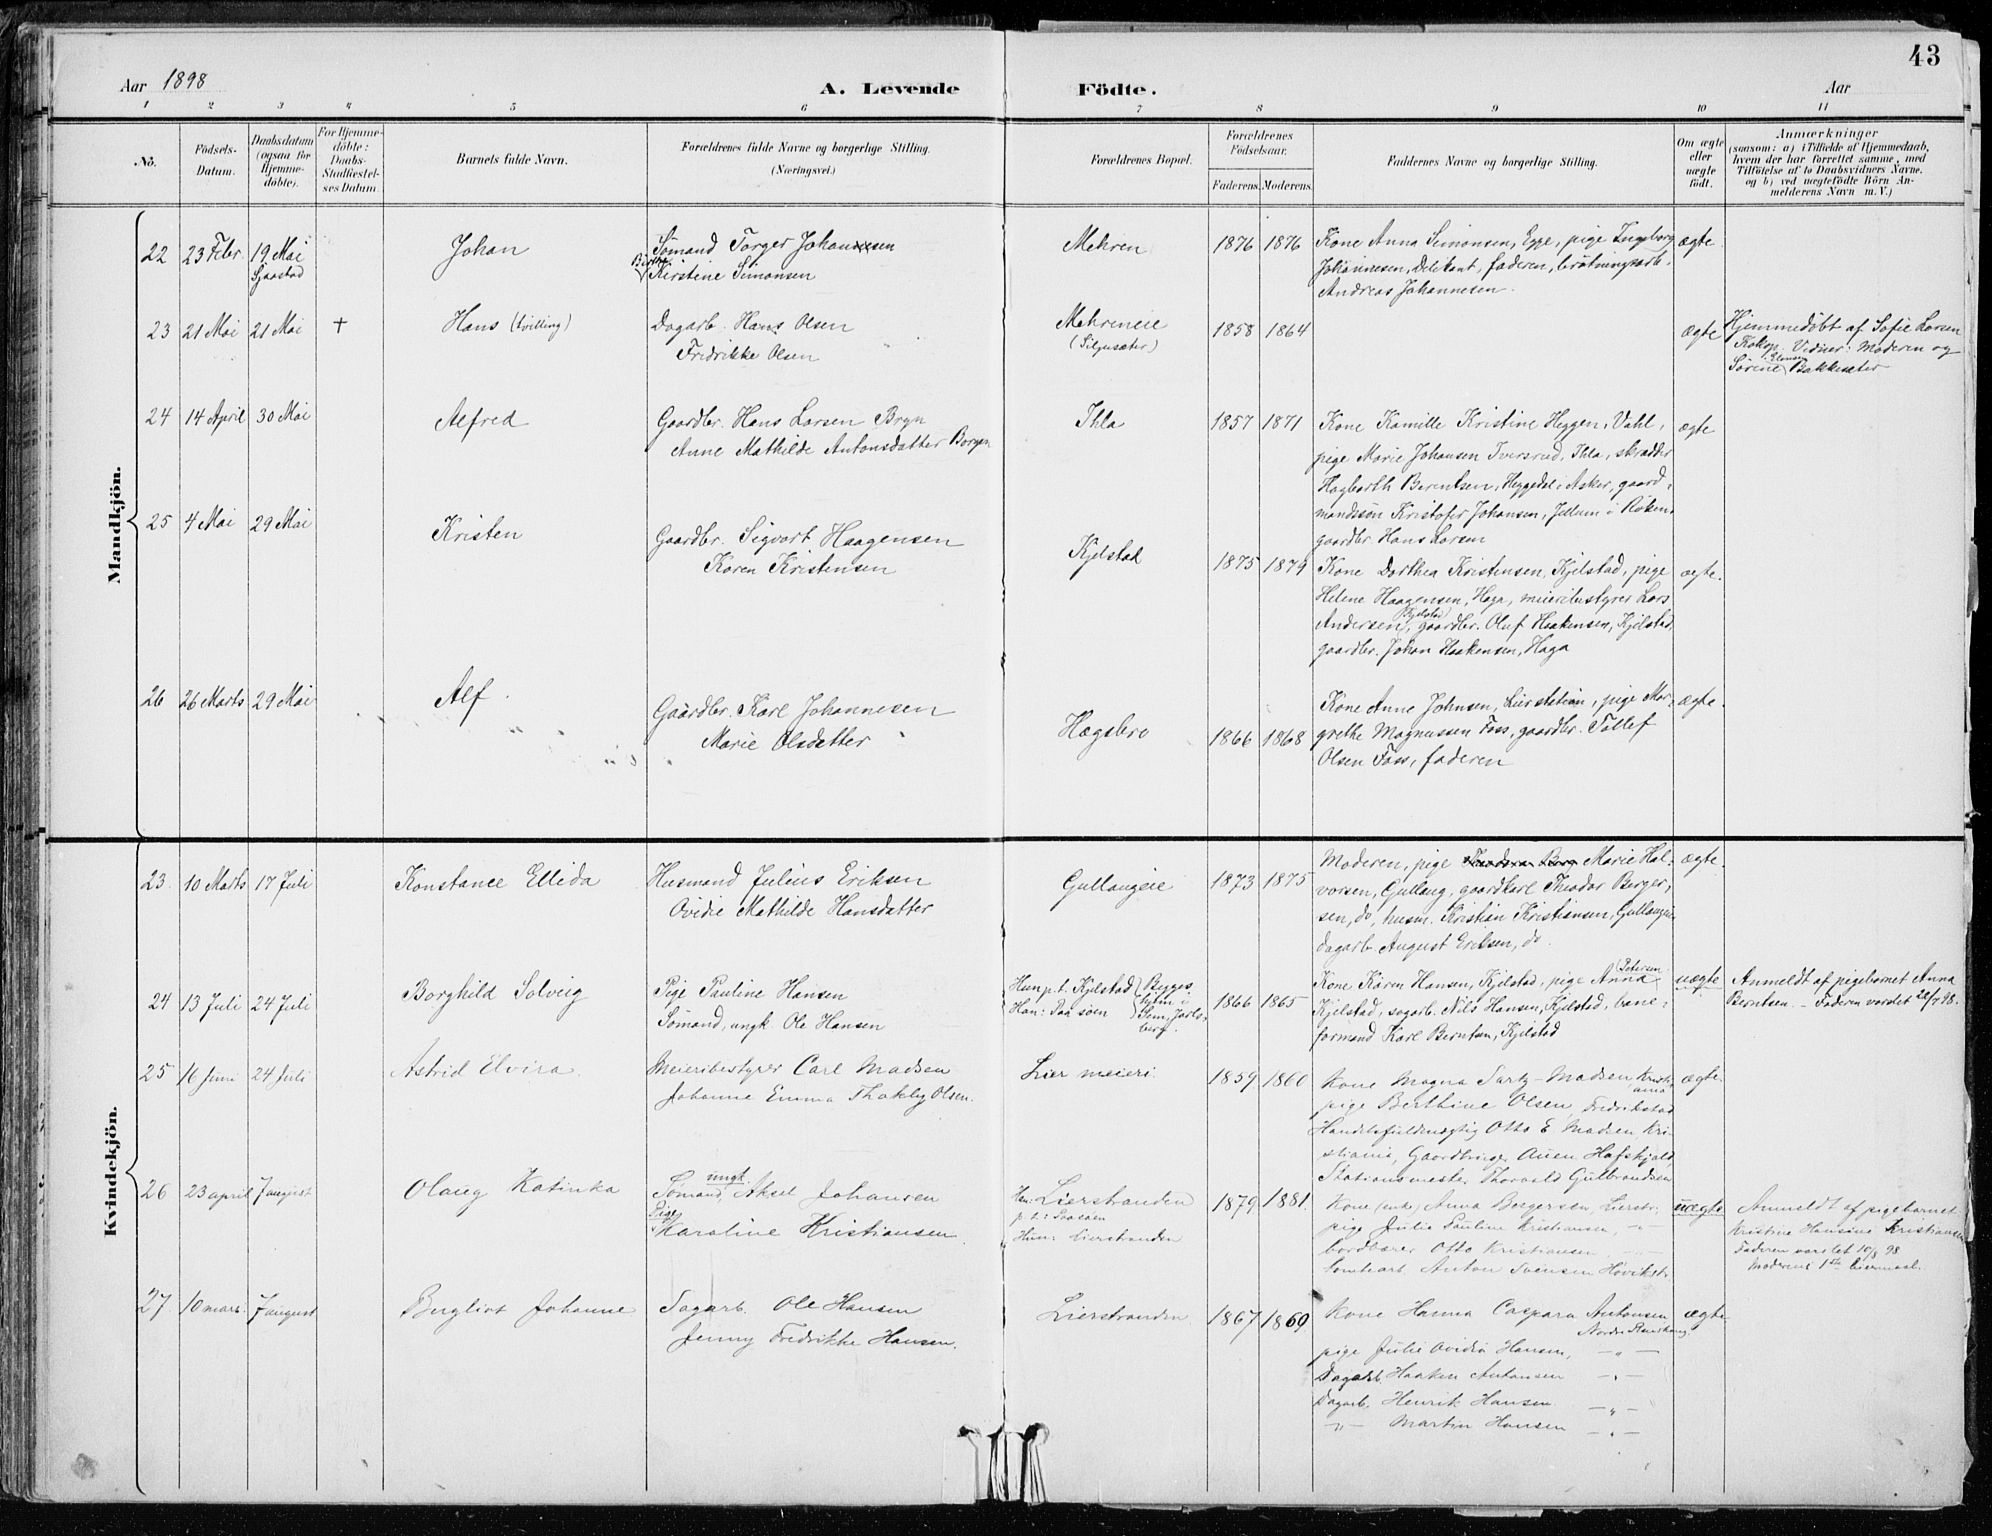 43
Aar 1898
A. Levende Födte.
Aar
1 2 3 4 5 6 7 8 9 10 11
No.
Födsels-Datum.
Daabsdatum (ogsaa för Hjemme-döbte).
For Hjemme-döbte: Daabs-Stadfæstel-ses Datum.
Barnets fulde Navn.
Forældrenes fulde Navne og borgerlige Stilling. (Næringsvei.)
Forældrenes Bopæl.
Forældrenes Födselsaar.
Faderens. Moderens.
Faddernes Navne og borgerlige Stilling.
Om ægte eller uægte födt.
Anmærkninger
(saasom: a) i Tilfælde af Hjemmedaab,
hvem der har forrettet samme, med
Tilföielse af to Daabsvidners Navne.
og b) ved uægtefödte Börn An-
melderens Navn m. V.)
Mandkjön.
22 23 Febr. 19 Mai Sjaastad Johan
Sømand Torger Johannesen
Birthe Kirstine Simonsen
Mehren 1876 1876
Kone Anna Simonsen, Egge, pige Ingeborg
Johannesen, Delikant, faderen, brøtningsarb.
Andreas Johannesen.
ægte.
23 21 Mai 21 Mai + Hans (tvilling)
Dagarb. Hans Olsen
Fredrikke Olsen
Mehreneie
(Siljusæter)
1858 1864
ægte
Hjemmedøbt af Sofie Larsen
Vidner: Moderen og
Sørine Bakkesæter
24 14 April 30 Mai Alfred
Gaardbr. Hans Larsen Bryn
Anne Mathilde Antonsdatter Borgen
Ihla 1857 1871
Kone Kamille Kristine Heggen, Vahl,
pige Marie Johansen Tversrud, Ihla, skrædder
Hagbarth Berentsen, Heggedal i Asker, gaard-
mandssøn Kristofer Johansen, Jellum i Røken
gaardbr Hans Larsen
ægte
25 4 Mai 29 Mai Kristen
Gaardbr. Sigvart Haagensen
Karen Kristensen
Kjelstad 1875 1879
Kone Dorthea Kristensen, Kjelstad, pige
Helene Haagensen, Haga, meieribestyrer Lars
Andersen, (Kjelstad) gaardbr. Oluf Haakensen, Kjelstad,
gaardbr. Johan Haakensen, Haga
ægte.
26 26 Marts 29 Mai Alf.
Gaardbr. Karl Johannesen
Marie Olsdatter
Hægsbro 1866 1868
Kone Anne Johnsen, Lier station, pige Mar-
grethe Magnussen Foss, gaardbr. Tollef
Olsen Foss, faderen
ægte.
Kvindekjön.
23. 10 Marts 17 Juli Konstance Ellida
Husmand Julius Eriksen
Ovidie Mathilde Hansdatter
Gullaugeie 1873 1875
Moderen, pige Marie Hal-
vorsen, Gullaug, gaardkarl Theodor Berger-
sen, do, husm. Kristian Kristiansen, Gullaugeie
dagarb. August Eriksen, do.
ægte.
24 13 Juli 24 Juli Borghild Solveig
Pige Pauline Hansen
Sømand, ungk. Ole Hansen
Hun p.t. Kjelstad
Han: Paa søen
Bergges
hjem i
Sem, Jarls-
berg.
1866 1865
Kone Karen Hansen, Kjelstad, pige Anna (Petersen
Kjelstad, sagarb. Nils Hansen, Kjelstad, bane-
formand Karl Berntsen, Kjelstad
uægte
Anmeldt af pigebarnet Anna
Berntsen. – Faderen varslet 26/7 98.
25 16 Juni 24 Juli Astrid Elvira.
Meieribestyrer Carl Madsen
Johanne Emma Thakley Olsen.
Lier meieri. 1859 1860
Kone Magna Sartz-Madsen, Kristi-
ania
pige Berthine Olsen, Fredrikstad
Handelsfuldmægtig Otto E. Madsen, Kri-
stiania, Gaardbruger Auen Hafskjold,
Stationsmester Thorvald Gulbrandsen
ægte.
26 23 april 7 august Olaug Katinka
Sømand, ungk. Aksel Johansen
Pige Karoline Kristiansen
Han: Lierstranden
p.t.: Paa søen
Hun: Lierstranden
1879 1881.
Kone (enke) Anna Bergersen, Lierstr.
pige Julia Pauline Kristiansen, –"–
bordbærer Otto Kristiansen, –"–
Tomtearb. Anton Svensen Høvikstr.
uægte
Anmeldt af pigebarnet
Kristine Hansine Kristiansen
Faderen varslet 10/8 98
Moderens 1ste leiermaal.
27 10 mars. 7 august Bergliot Johanne
Sagarb. Ole Hansen
Jenny Fredrikke Hansen.
Lierstranden. 1867 1869
Kone Hanna Caspara Antonsen
pige Julie Ovidia Hansen, –"–
Dagarb. Haaken Antonsen –"–
Dagarb. Henrik Hansen –"–
–"– Martin Hansen –"–
ægte